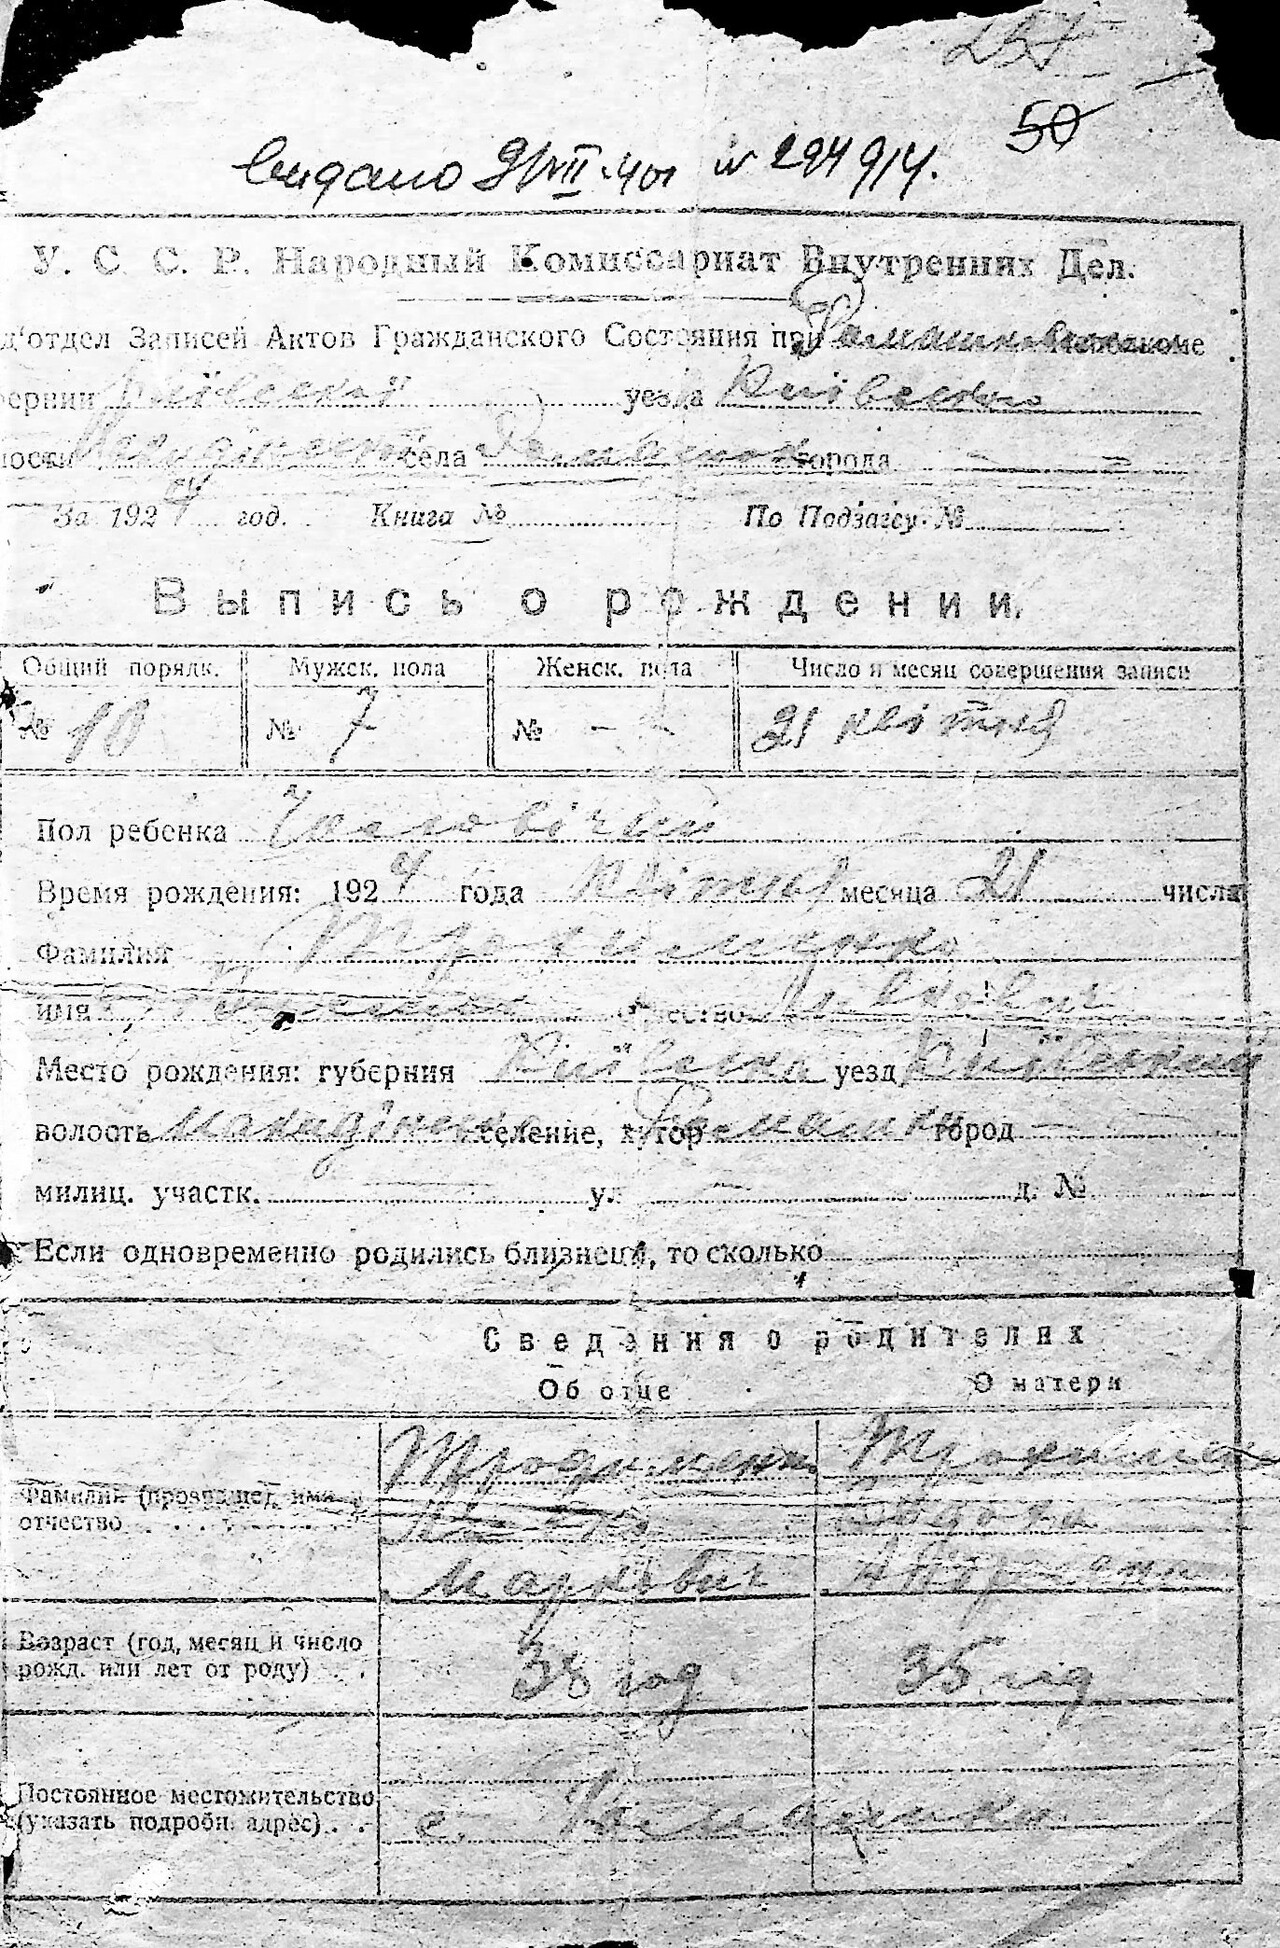 257
50
видано 9/VII.40 №294914.
У. С. С. Р. Народный Комиссариат Внутренних Дел.
д'отдел Записей Актов Гражданского Состояния при
ернии Київської уезда Київского
ости села Ромашок города
За 1924 год. Книга № По Подзагсу №
Выпись о рождении.
Общий порядк. Мужск. пола Женск. пола Число и месяц совершения записи
№ 10 № 7 № - - 21 квітня
Пол ребенка Чоловічий
Время рождения: 1924 года Квітня месяца 21 числа
Фамилия Трохименко
имя отчество
Место рождения: губерния Київська уезд Київський
волость селение, хутор Ромашки город —
милиц. участк. — ул — д. №
Если одновременно родились близнецы, то сколько
Сведения о родителях
Об отце О матери
Фамилия (прозвище), имя и отчество
Маркович
Возраст (год, месяц и число рожд. или лет от роду) 38 год 35 год
Постоянное местожительство (указать подробн. адрес) с. Ромашки